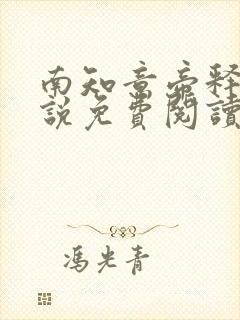 南知意帝释
說免費閱讀
馮光青